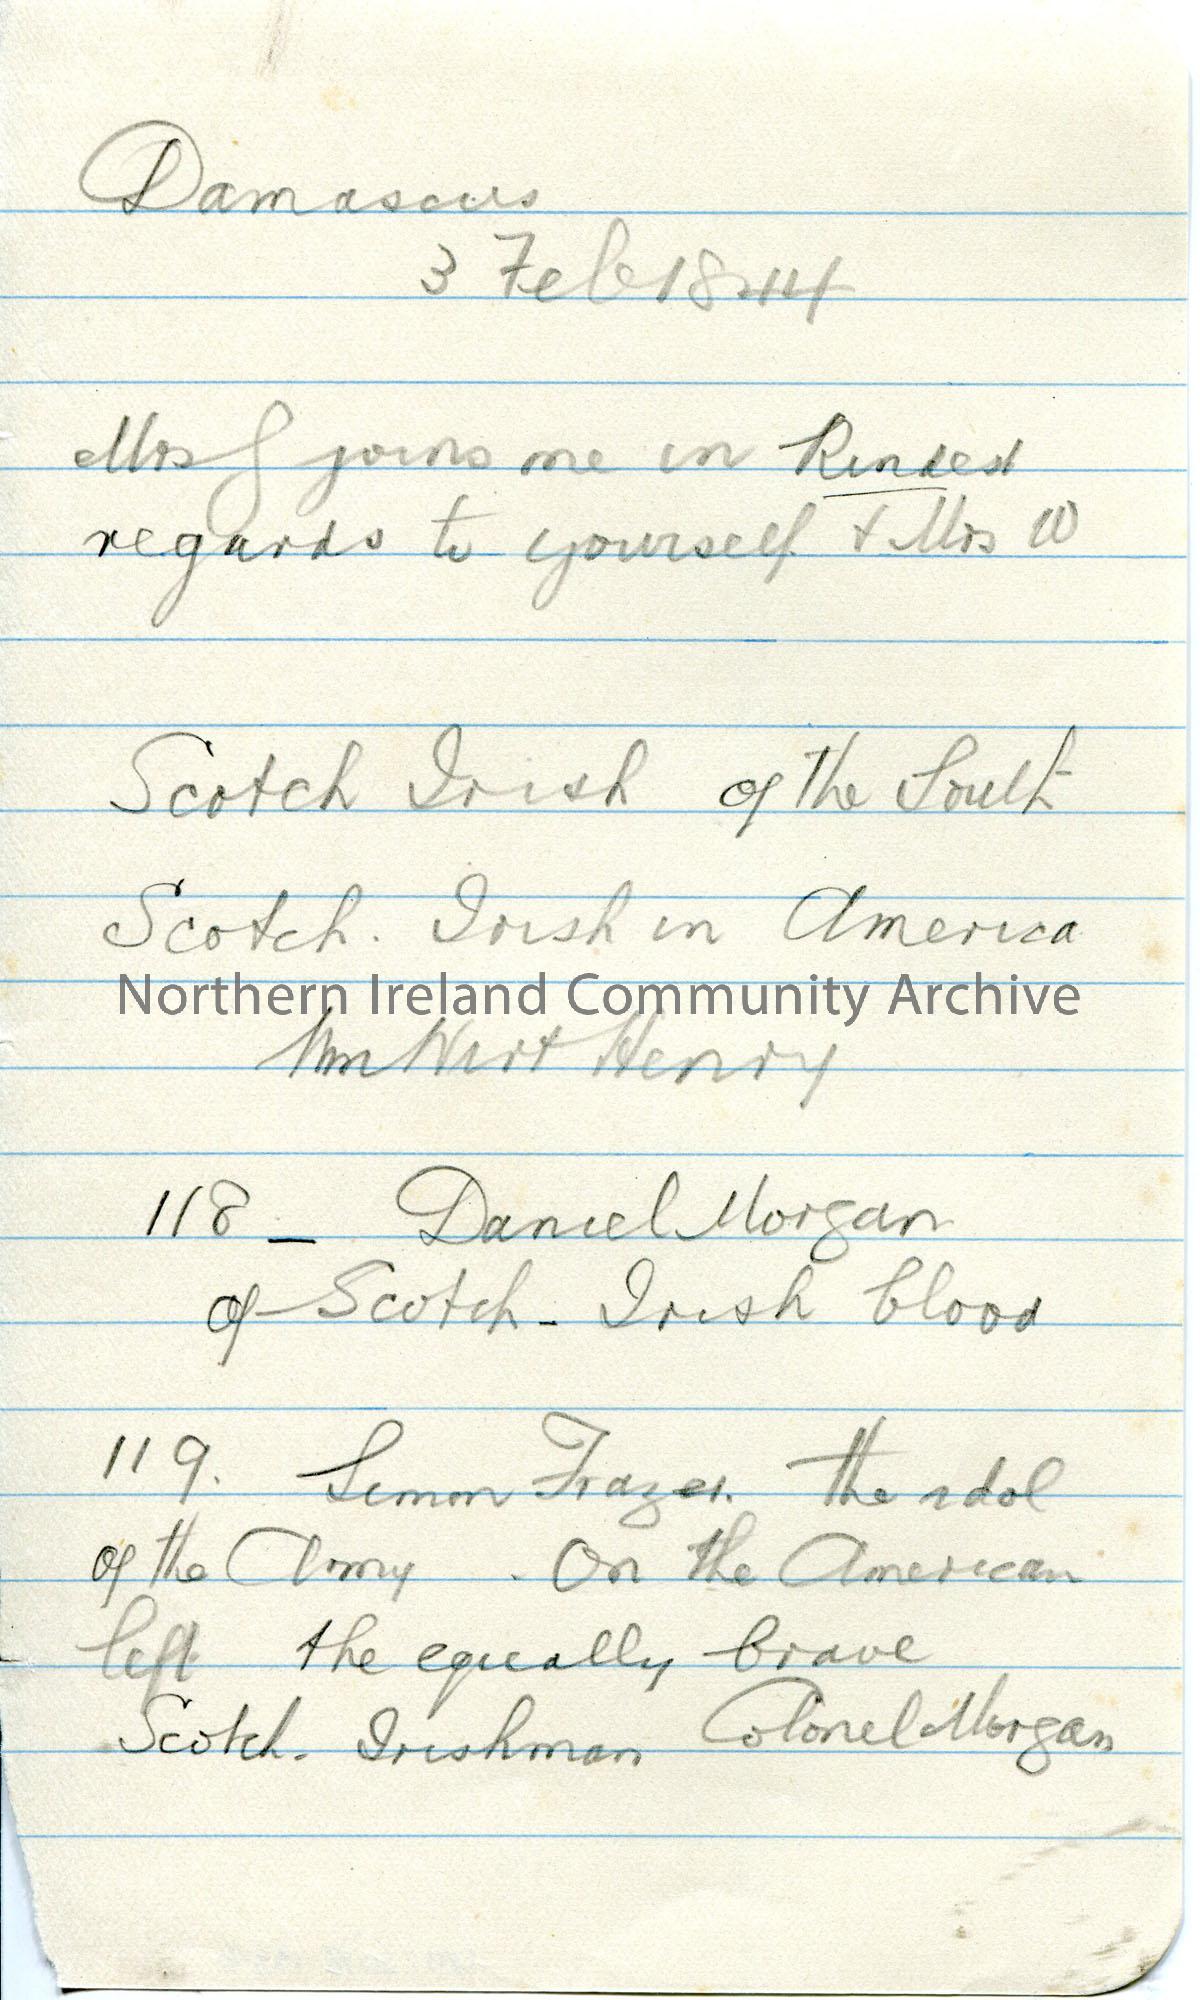 Damascus
3 Feb 1844
Mrs G joins me in Kindest
regards to yourself & Mrs W
Scotch Irish of the South
Scotch. Irish in America
Northern Ireland Community Archive
Wm Wirt Henry
118 _ Daniel Morgan
of Scotch - Irish blood
119. Simon Frazer. the idol
of the Army. On the American
left the equally brave
Scotch. Irishman Colonel Morgan